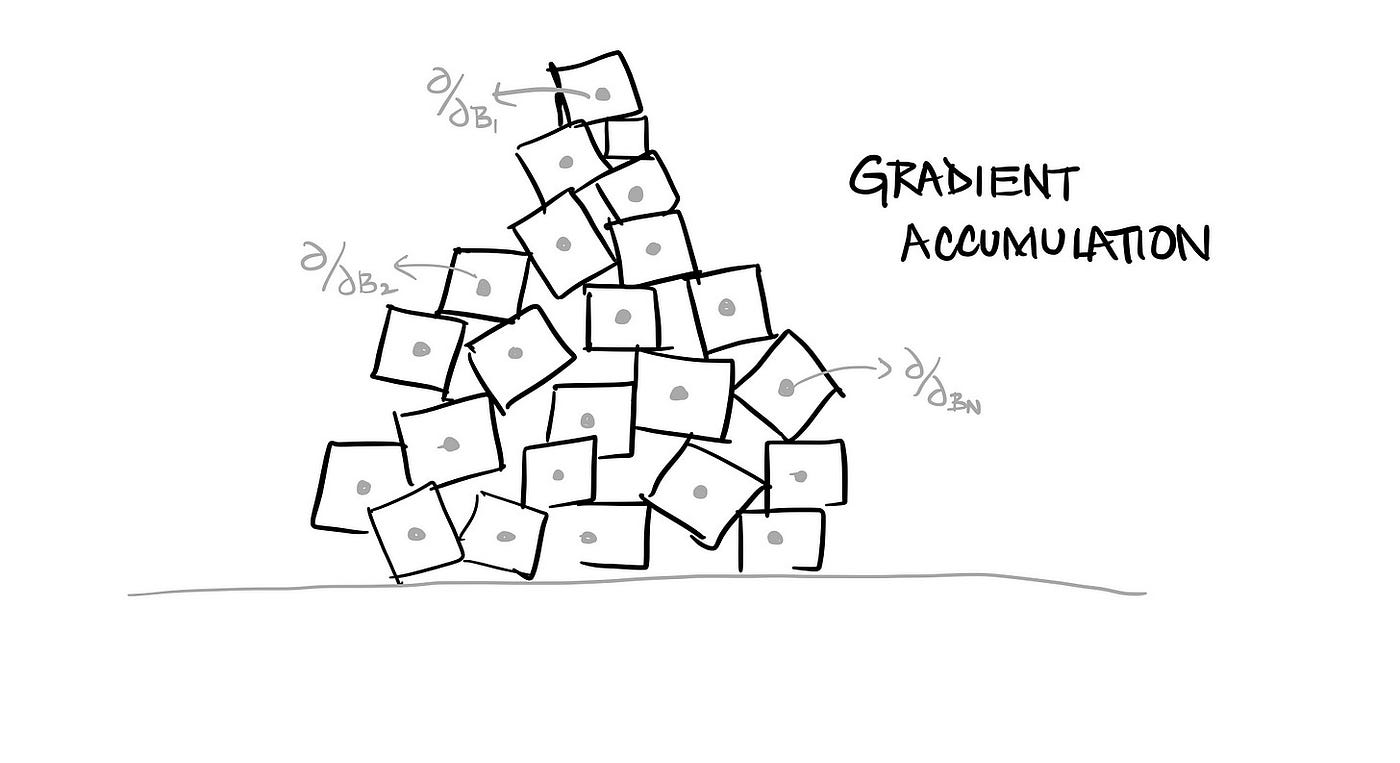 ∂/∂B₁
GRADIENT
ACCUMULATION
∂/∂B₂
∂/∂BN